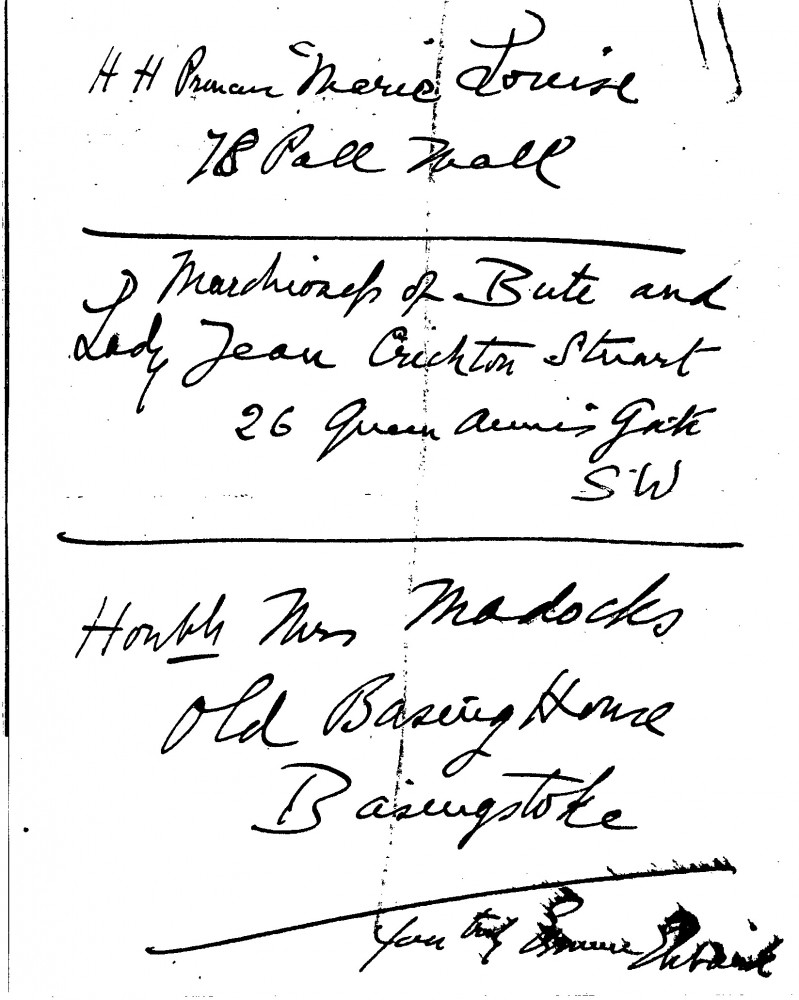 H H Princess Marie Louise
78 Pall Mall
Marchioness of Bute and
Lady Jean Crichton Stuart
26 Queen Anne's Gate
SW
Honble Mrs Madocks
Old Basing House
Basingstoke
truly